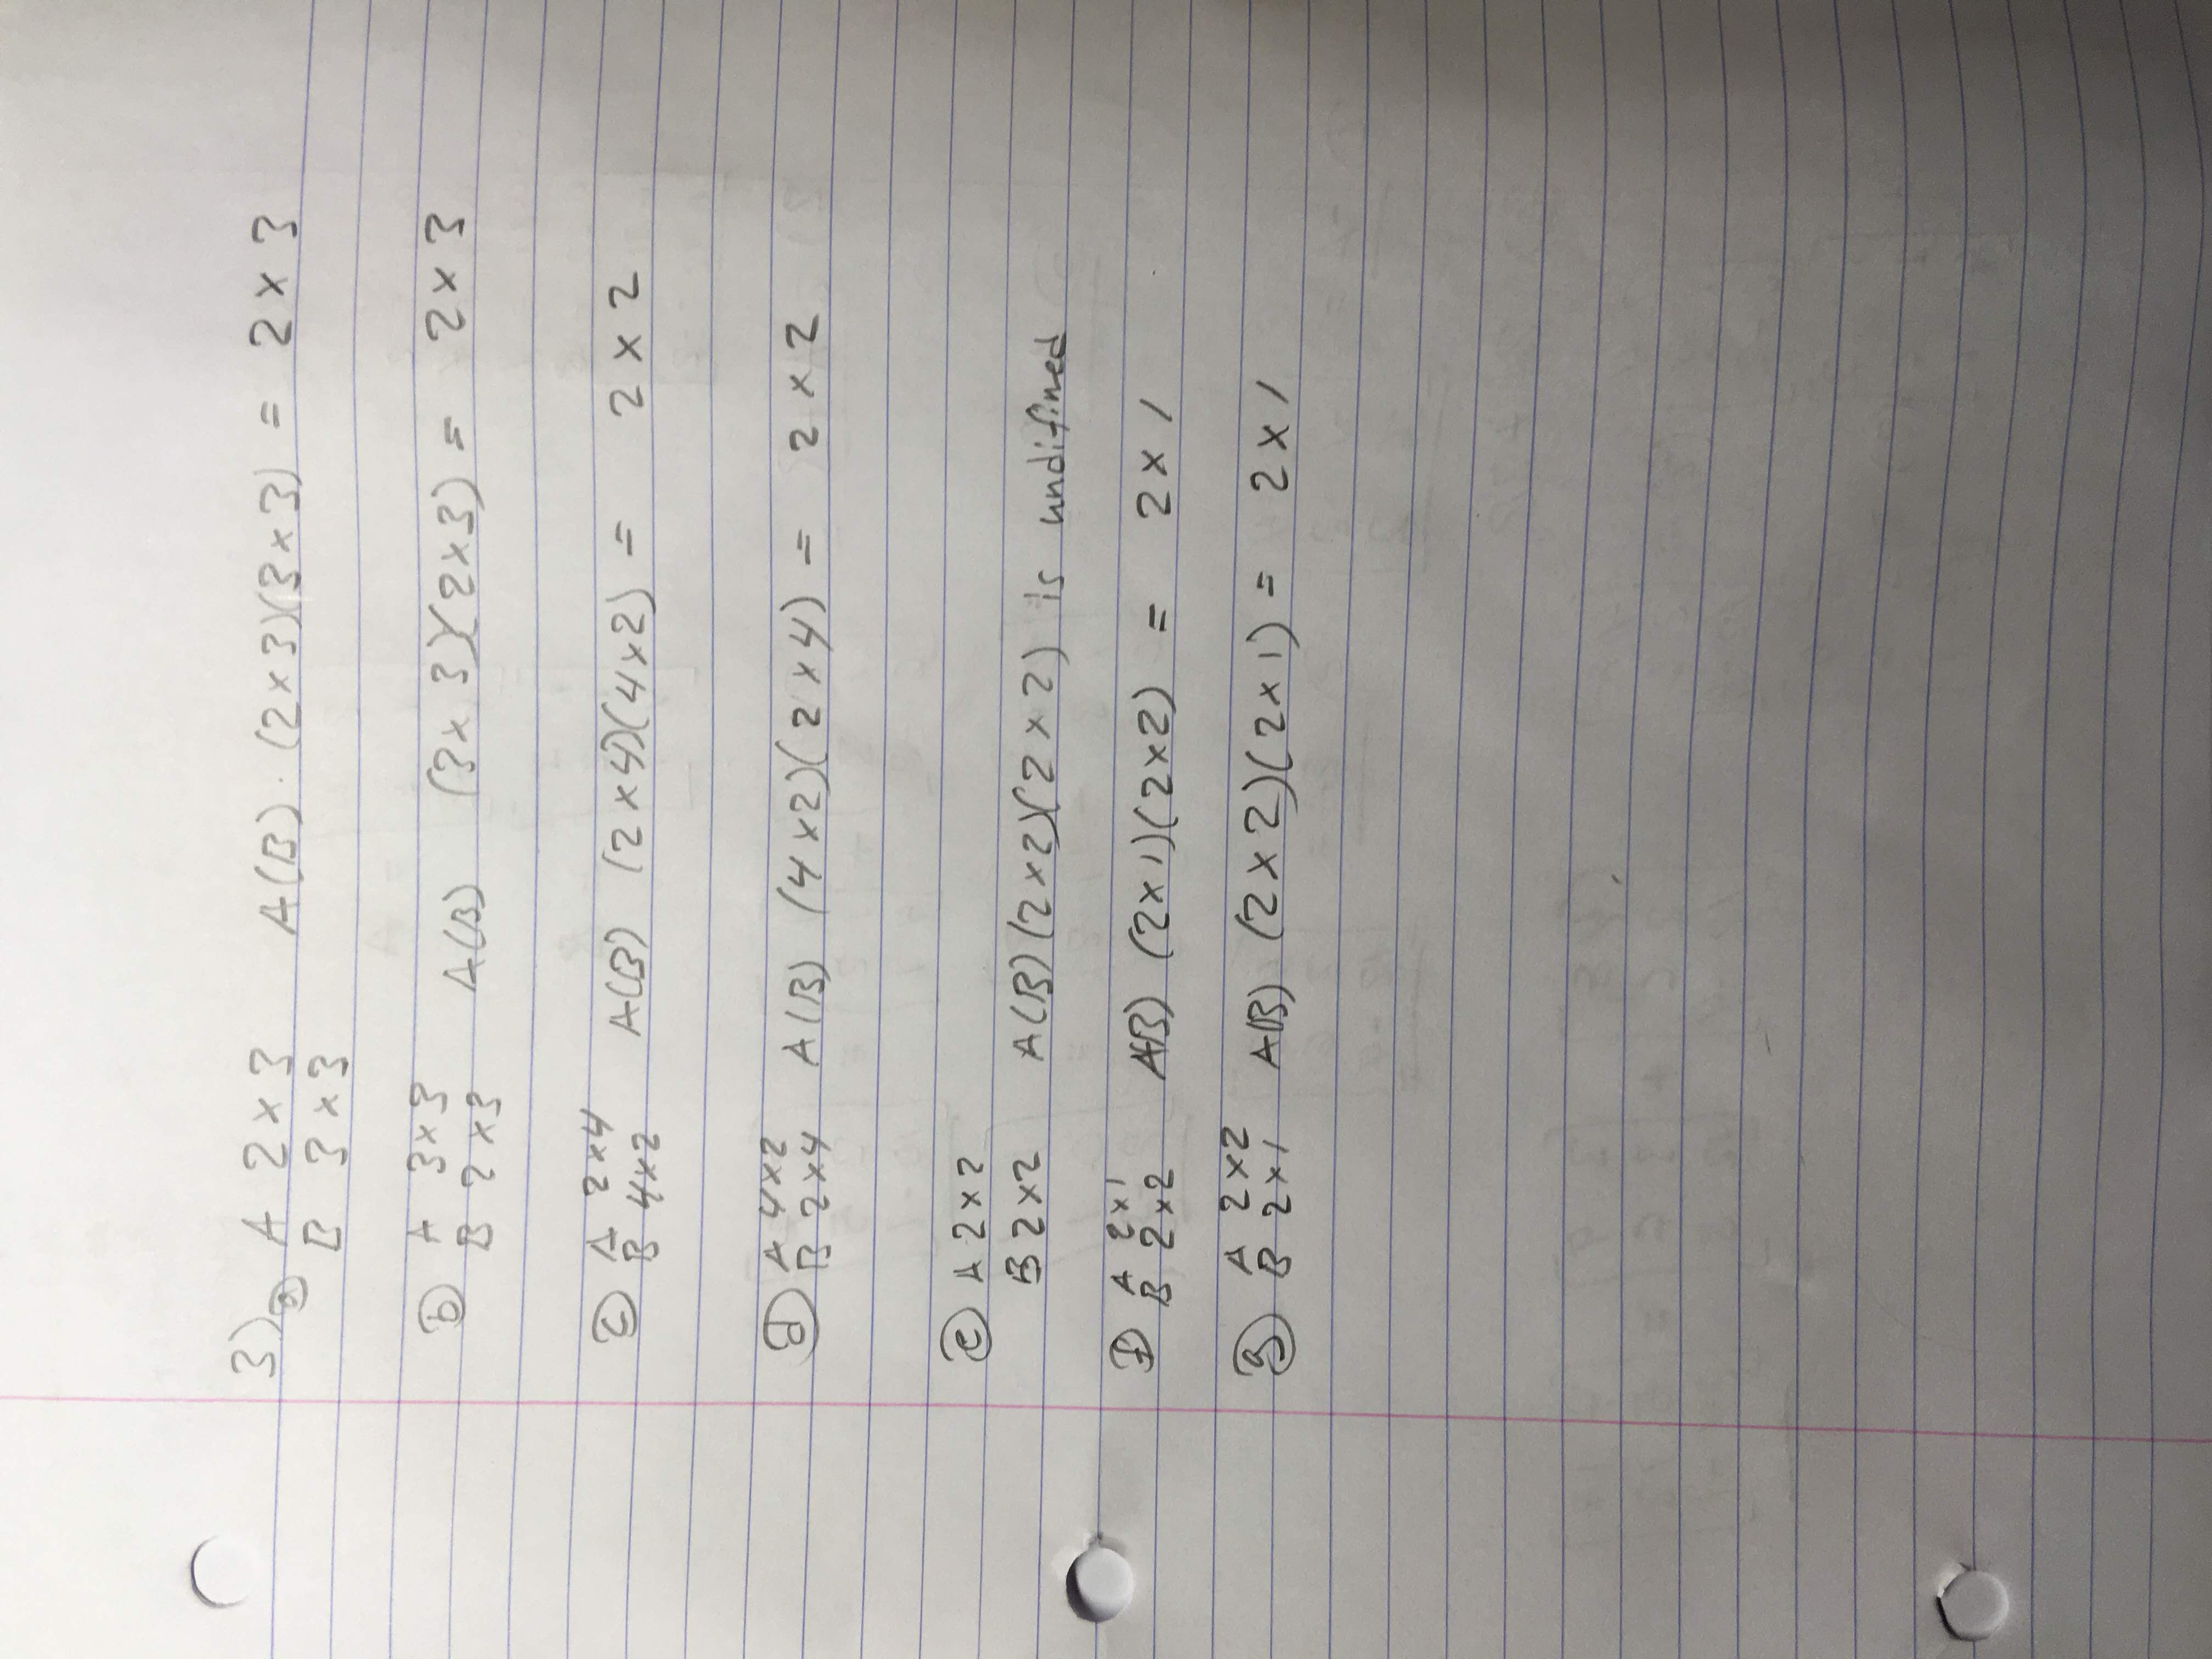 3) ⓐ A 2 x 3 A(B) · (2 x 3)(3 x 3) = 2 x 3
B 3 x 3
ⓑ A 3 x 3 A(B) (3 x 3)(2 x 3) = 2 x 3
B 2 x 3
ⓒ A 2 x 4 A(B) (2 x 4)(4 x 2) = 2 x 2
B 4 x 2
ⓓ A 4 x 2 A(B) (4 x 2)(2 x 4) = 2 x 2
B 2 x 4
ⓔ A 2 x 2
B 2 x 2 A(B) (2 x 2)(2 x 2) is undifined
ⓕ A 2 x 1 A(B) (2 x 1)(2 x 2) = 2 x 1
B 2 x 2
ⓖ A 2 x 2 A(B) (2 x 2)(2 x 1) = 2 x 1
B 2 x 1